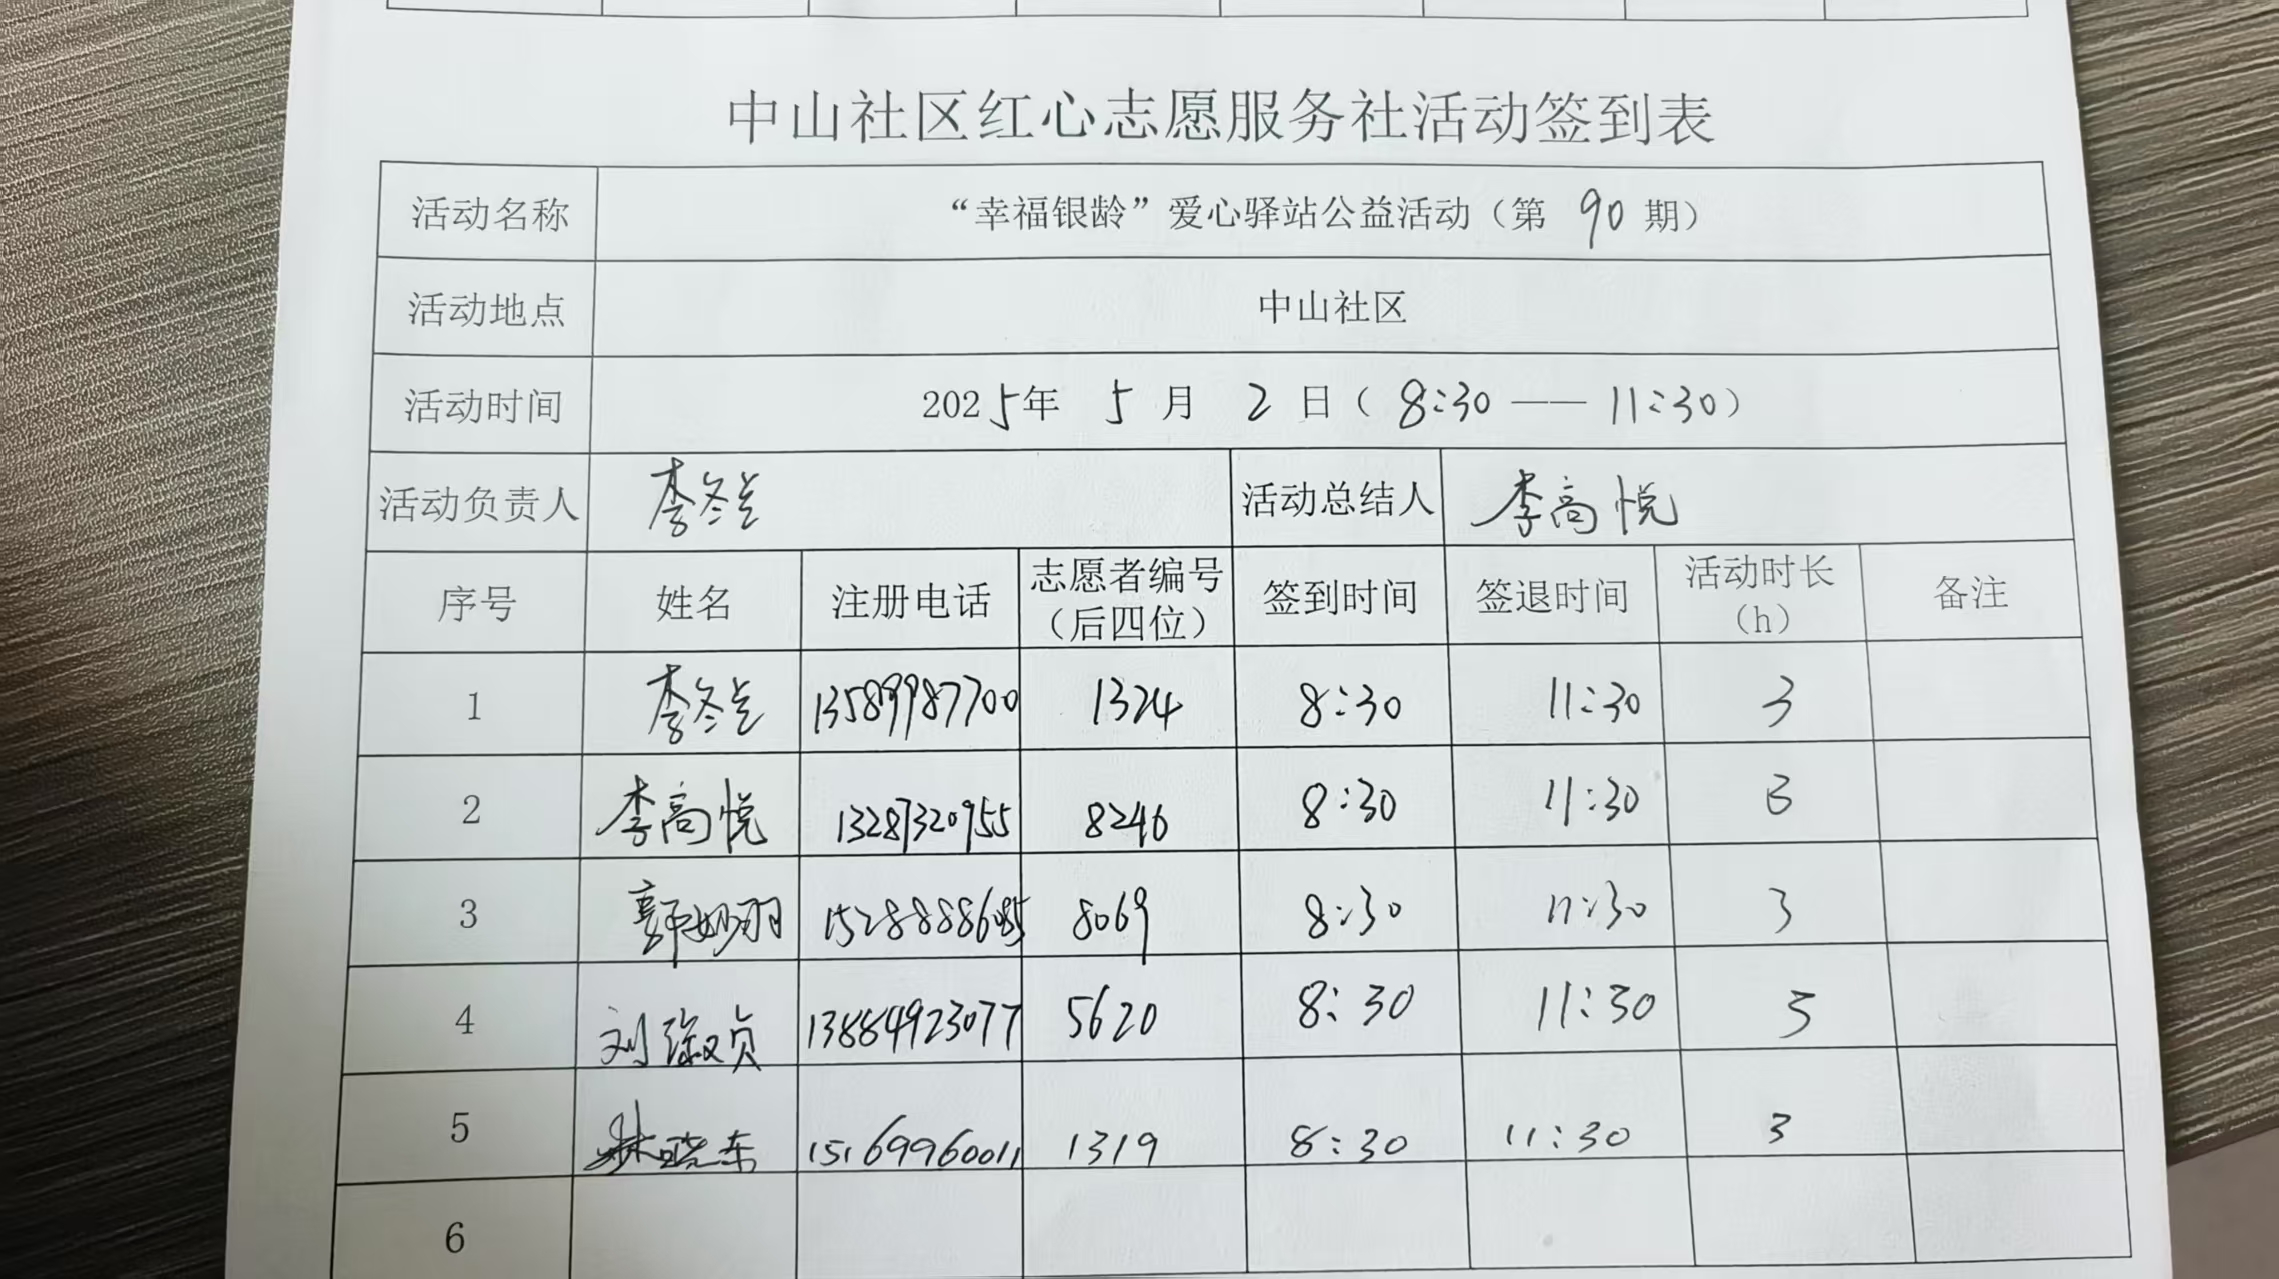 中山社区红心志愿服务社活动签到表
活动名称 “幸福银龄”爱心驿站公益活动（第 90 期）
活动地点 中山社区
活动时间 2025年 5 月 2 日（8:30 —— 11:30）
活动负责人 李冬兰 活动总结人 李高悦
序号 姓名 注册电话 志愿者编号（后四位） 签到时间 签退时间 活动时长（h） 备注
1 李冬兰 13589987700 1324 8:30 11:30 3
2 李高悦 13287320955 8246 8:30 11:30 3
3 郭妙羽 15288886085 8069 8:30 11:30 3
4 刘淑贞 13884923077 5620 8:30 11:30 3
5 林晓东 15169960011 1319 8:30 11:30 3
6